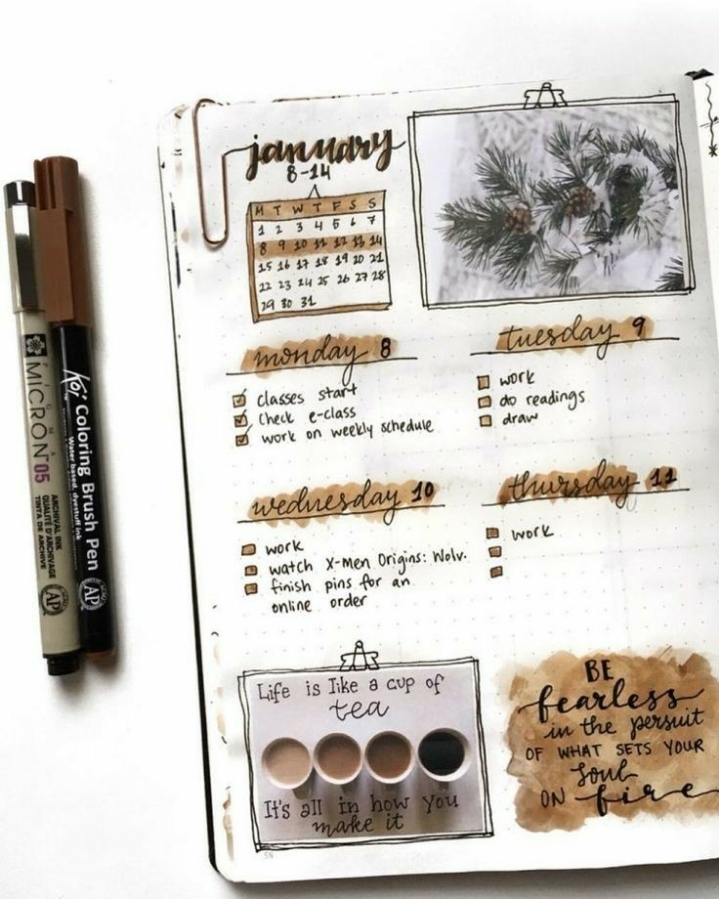 january
8-14
M T W T F S S
1 2 3 4 5 6 7
8 9 10 11 12 13 14
15 16 17 18 19 20 21
22 23 24 25 26 27 28
29 30 31
monday 8
classes start
check e-class
work on weekly schedule
tuesday 9
work
do readings
draw
wednesday 10
work
watch X-Men Origins: Wolv.
finish pins for an
online order
thursday 11
work
Life is like a cup of
tea
It's all in how you
make it
BE
fearless
in the persuit
OF WHAT SETS YOUR
soul
ON fire
MICRON 05
ARCHIVAL INK
QUALITÉ D'ARCHIVAGE
TINTA DE ARCHIVE
AP
Koi Coloring Brush Pen
Water based, dyestuff ink
AP